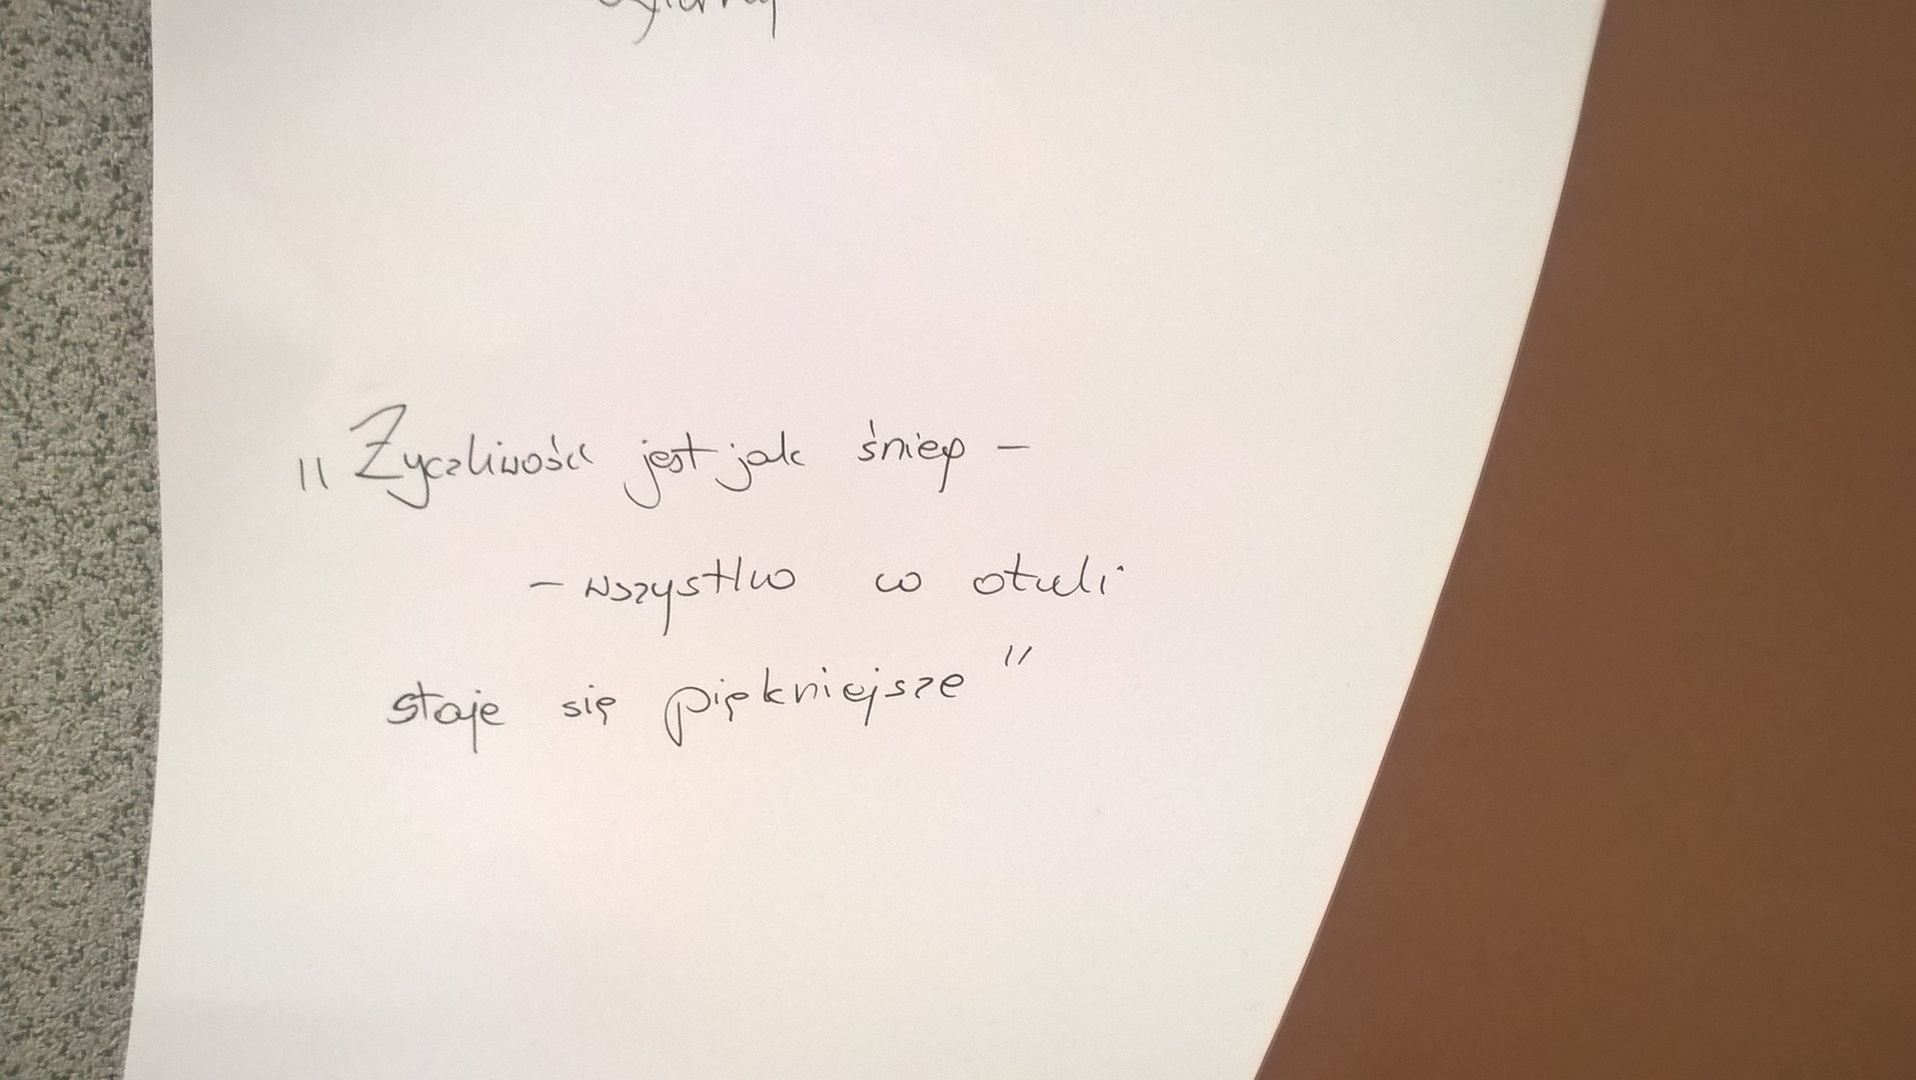 „Życzliwość jest jak śnieg –
– wszystko co otuli
staje się piękniejsze"